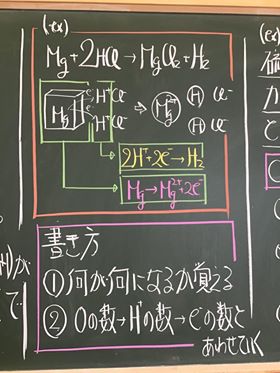 (ex)
Mg+2HCl→MgCl2+H2
Mg e- e- H+ Cl- H+ Cl- ⇒ Mg2+ H Cl- H Cl-
2H++2e-→H2
Mg→Mg2++2e-
書き方
①何が何になるか覚える
②Oの数→H+の数→e-の数と
あわせていく
(ex)
が
で